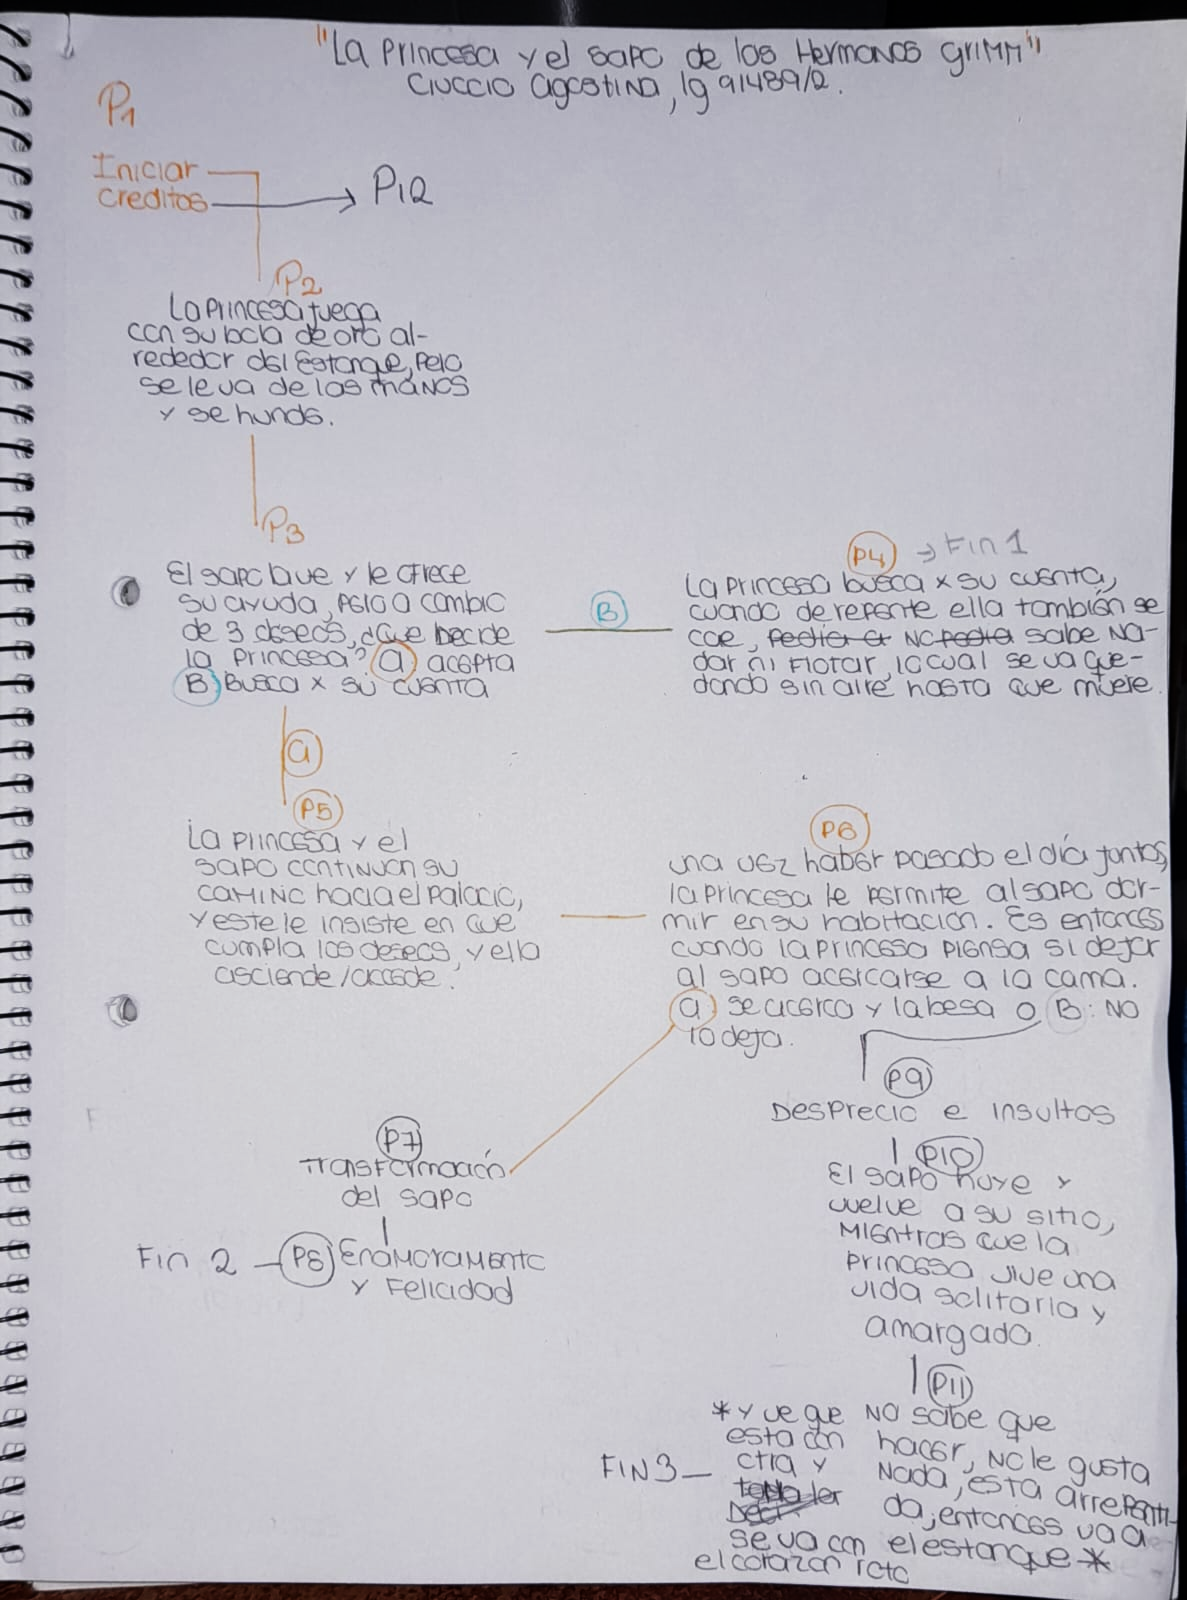 "La Princesa y el sapo de los Hermanos Grimm"
Ciuccio Agostina, lg 91489/2.
P1
Iniciar
creditos → P12
P2
La princesa juega
con su bola de oro al-
rededor del Estanque, pero
se le va de las manos
y se hunde.
P3
El sapo la ve y le ofrece
su ayuda, pero a cambio
de 3 deseos, ¿Que Decide
la princesa? a acepta
B) Busca x su cuenta
B
P4 → Fin 1
La princesa busca x su cuenta,
cuando derepente ella también se
cae, No sabe Na-
dar ni Flotar, lo cual se va que-
dando sin aire hasta que muere.
a
P5
La princesa y el
sapo continuan su
camino hacia el Palacio,
y este le insiste en que
cumpla los deseos, y ella
asciende/accede.
P6
una vez haber pasado el día juntos,
la princesa le permite al sapo dor-
mir en su habitacion. Es entonces
cuando la princesa piensa si dejar
al sapo acercarse a la cama.
a) se acerca y la besa o B: No
lo deja.
P7
Transformación
del sapo
Fin 2 - P8 Enamoramiento
y Felicidad
P9
Desprecio e insultos
P10
El sapo huye y
vuelve a su sitio,
Mientras que la
princesa vive una
vida solitaria y
amargada.
P11
FIN 3 -
No sabe que
hacer, No le gusta
Nada, esta arrepenti-
da, entonces va a
el estanque *
* y ve que
esta con
otra y
se va con
el corazon roto